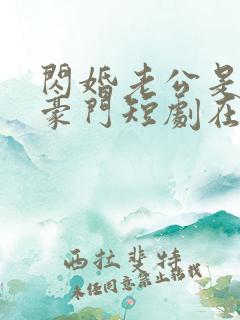 閃婚老公是
豪門短劇在
西拉斐特
未經同意禁止轉載